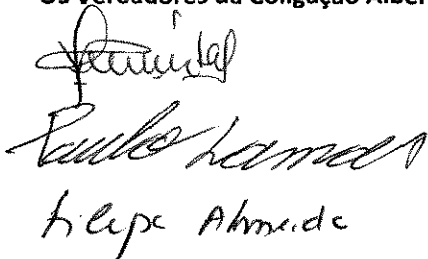 Os Vereadores da Coligação Alber
Paulo Ramos
Filipe Almeida